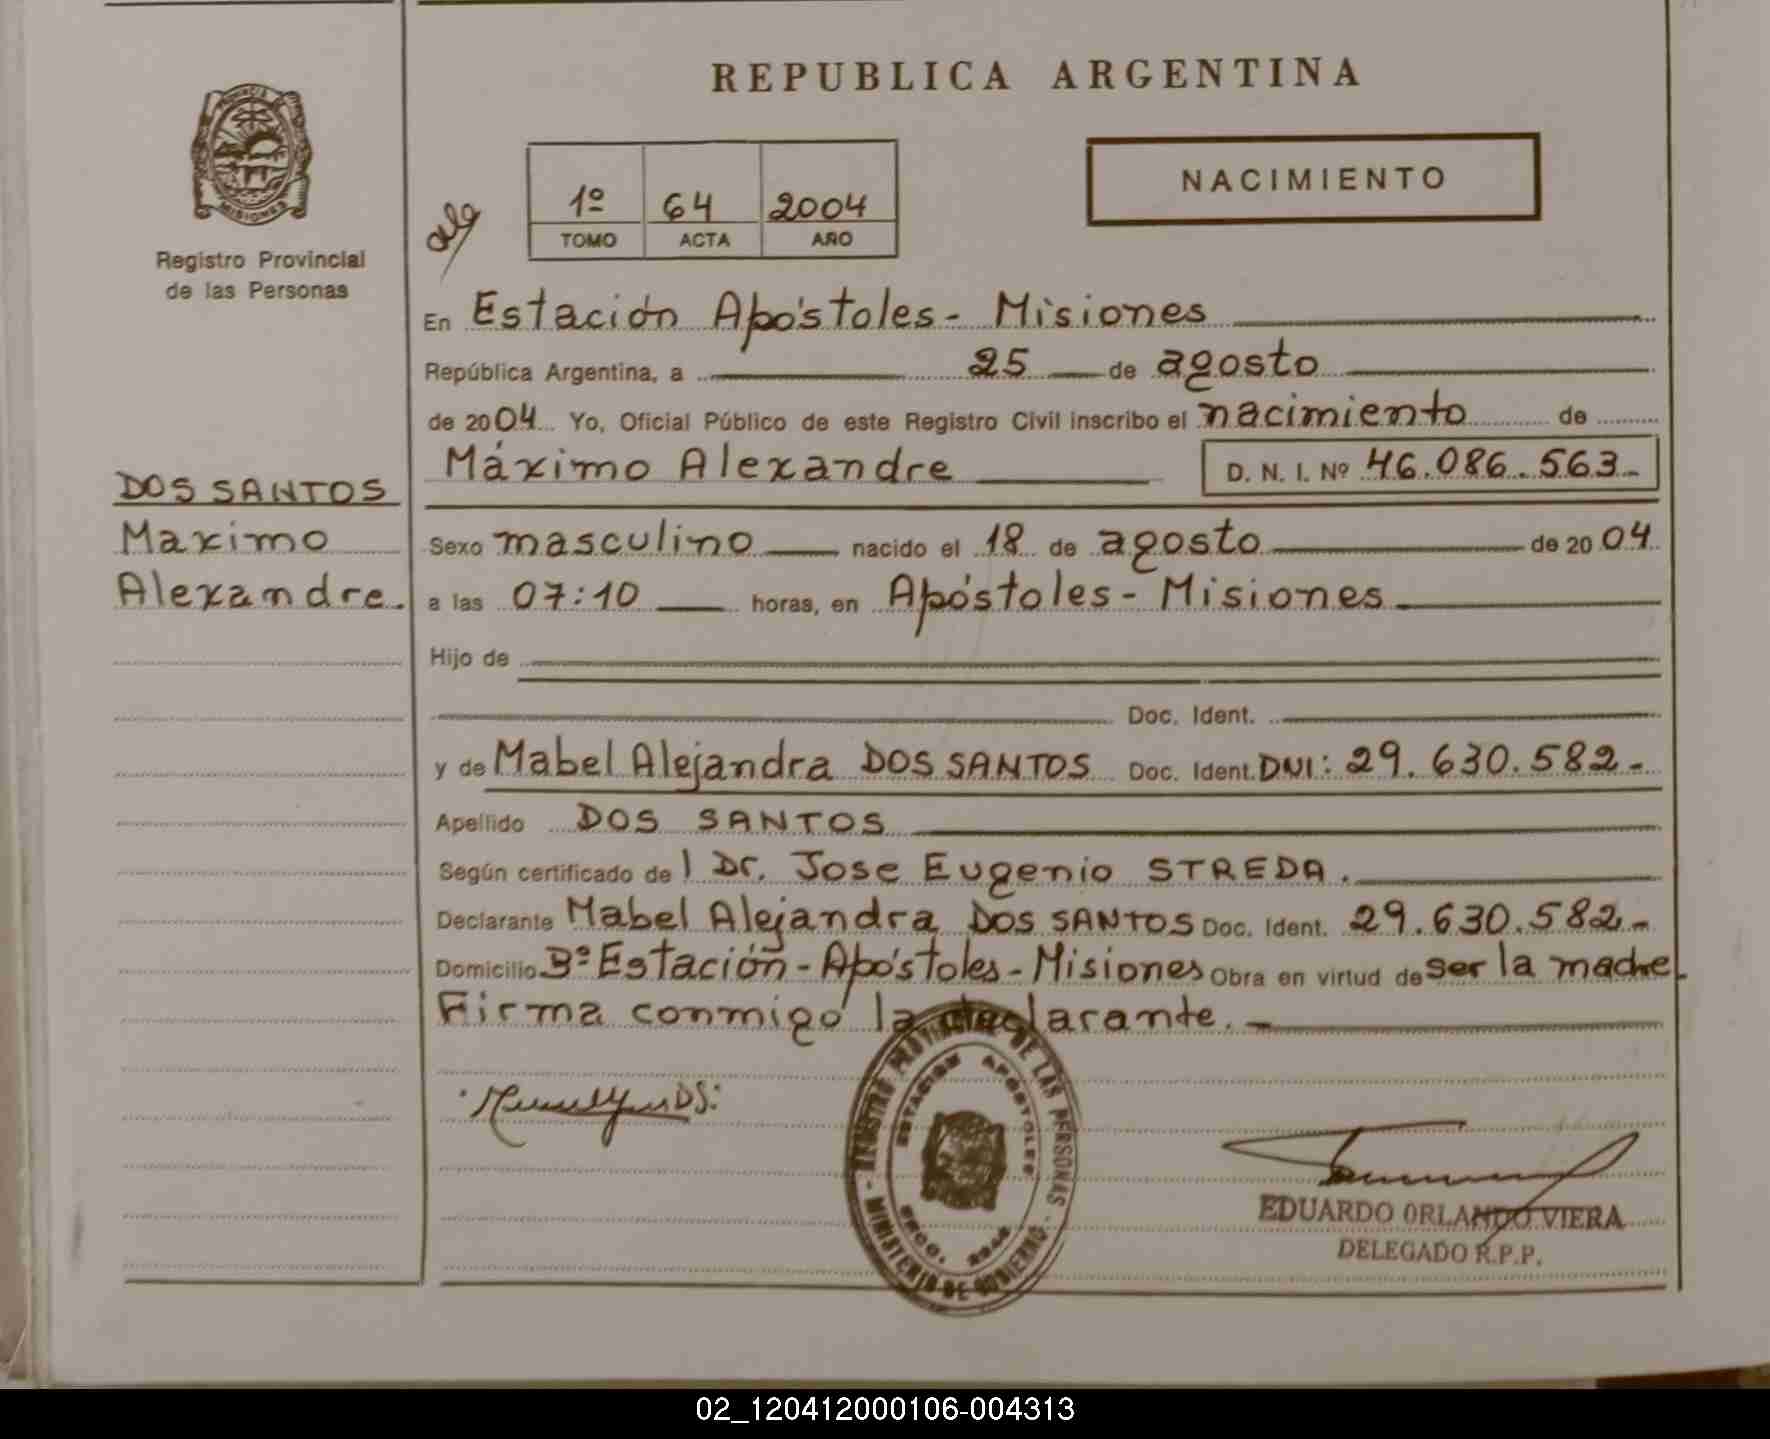 REPUBLICA ARGENTINA
PROVINCIA DE
MISIONES
Registro Provincial
de las Personas
1º 64 2004
TOMO ACTA AÑO
NACIMIENTO
En Estación Apóstoles - Misiones
República Argentina, a 25 de agosto
de 2004 Yo, Oficial Público de este Registro Civil inscribo el nacimiento de
Máximo Alexandre D. N. I. Nº 46.086.563-
DOS SANTOS
Maximo
Alexandre.
Sexo masculino nacido el 18 de agosto de 2004
a las 07:10 horas, en Apóstoles - Misiones
Hijo de
Doc. Ident.
y de Mabel Alejandra DOS SANTOS Doc. Ident. DNI: 29.630.582-
Apellido DOS SANTOS
Según certificado del Dr. Jose Eugenio STREDA.
Declarante Mabel Alejandra DOS SANTOS Doc. Ident. 29.630.582-
Domicilio Bº Estación - Apóstoles - Misiones Obra en virtud de ser la madre
Firma conmigo la declarante. -
REGISTRO PROVINCIAL DE LAS PERSONAS
ESTACION APOSTOLES
- MINISTERIO DE GOBIERNO -
EDUARDO ORLANDO VIERA
DELEGADO R.P.P.
02_120412000106-004313